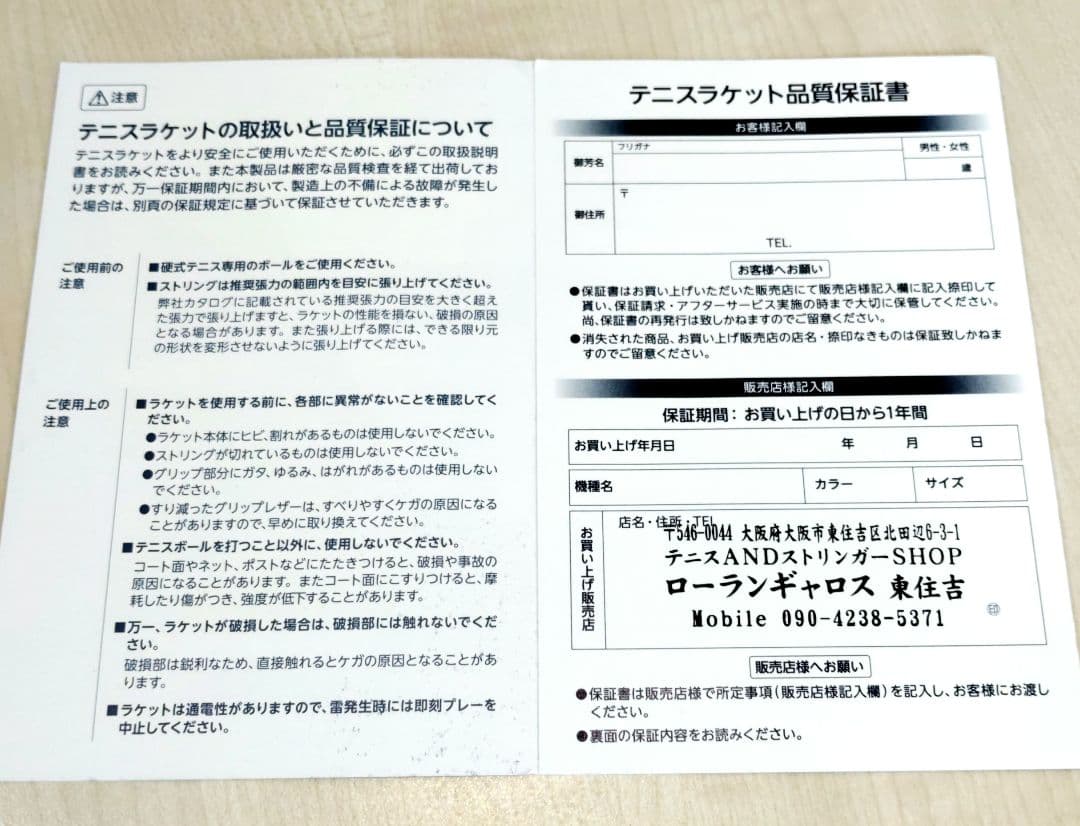 注意
テニスラケットの取扱いと品質保証について
テニスラケットをより安全にご使用いただくために、必ずこの取扱説明
書をお読みください。また本製品は厳密な品質検査を経て出荷してお
りますが、万一保証期間内において、製造上の不備による故障が発生し
た場合は、別頁の保証規定に基づいて保証させていただきます。
ご使用前の
注意
■硬式テニス専用のボールをご使用ください。
■ストリングは推奨張力の範囲内を目安に張り上げてください。
弊社カタログに記載されている推奨張力の目安を大きく超え
た張力で張り上げますと、ラケットの性能を損ない、破損の原因
となる場合があります。また張り上げる際には、できる限り元
の形状を変形させないように張り上げてください。
ご使用上の
注意
■ラケットを使用する前に、各部に異常がないことを確認してく
ださい。
●ラケット本体にヒビ、割れがあるものは使用しないでください。
●ストリングが切れているものは使用しないでください。
●グリップ部分にガタ、ゆるみ、はがれがあるものは使用しない
でください。
●すり減ったグリップレザーは、すべりやすくケガの原因になる
ことがありますので、早めに取り換えてください。
■テニスボールを打つこと以外に、使用しないでください。
コート面やネット、ポストなどにたたきつけると、破損や事故の
原因になることがあります。またコート面にこすりつけると、摩
耗したり傷がつき、強度が低下することがあります。
■万一、ラケットが破損した場合は、破損部には触れないでくだ
さい。
破損部は鋭利なため、直接触れるとケガの原因となることがあ
ります。
■ラケットは通電性がありますので、雷発生時には即刻プレーを
中止してください。
テニスラケット品質保証書
お客様記入欄
御芳名
フリガナ
男性・女性
歳
御住所
〒
TEL.
お客様へお願い
●保証書はお買い上げいただいた販売店にて販売店様記入欄に記入捺印して
貰い、保証請求・アフターサービス実施の時まで大切に保管してください。
尚、保証書の再発行は致しかねますのでご留意ください。
●消失された商品、お買い上げ販売店の店名・捺印なきものは保証致しかねま
すのでご留意ください。
販売店様記入欄
保証期間：お買い上げの日から1年間
お買い上げ年月日 年 月 日
機種名
カラー
サイズ
お買い上げ販売店
店名・住所・TEL
〒546-0044 大阪府大阪市東住吉区北田辺6-3-1
テニスANDストリンガーSHOP
ローランギャロス 東住吉
Mobile 090-4238-5371
印
販売店様へお願い
●保証書は販売店様で所定事項（販売店様記入欄）を記入し、お客様にお渡し
ください。
●裏面の保証内容をお読みください。